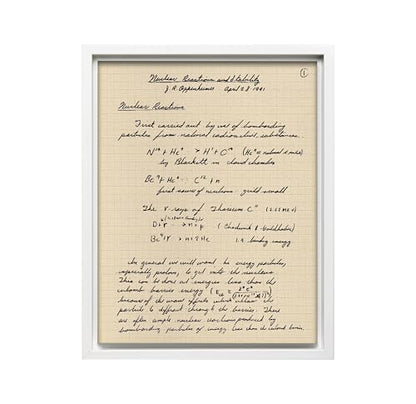 1
Nuclear Reactions and Stability
J. R. Oppenheimer April 28 1941
Nuclear Reactions
First carried out by use of bombarding
particles from natural radioactive substances.
N¹⁴ + He⁴ → H¹ + O¹⁷ (He⁴ as natural α rays)
by Blackett in cloud chamber
Be⁹ + He⁴ C¹² + n
first source of neutrons yield small
The γ rays of Thorium C" (2.62 MeV)
D + γ → n + p (Chadwick & Goldhaber)
Be⁹ + γ → n + 2He binding energy
In general we will want low energy particles,
especially protons, to get into the nucleus
This can be done at energies less than the
coulomb barrier energy
because of the wave effects which allow the
particle to diffract through the barrier. There
are often simple nuclear reactions produced by
bombarding particles of energy less than the coulomb barrier.